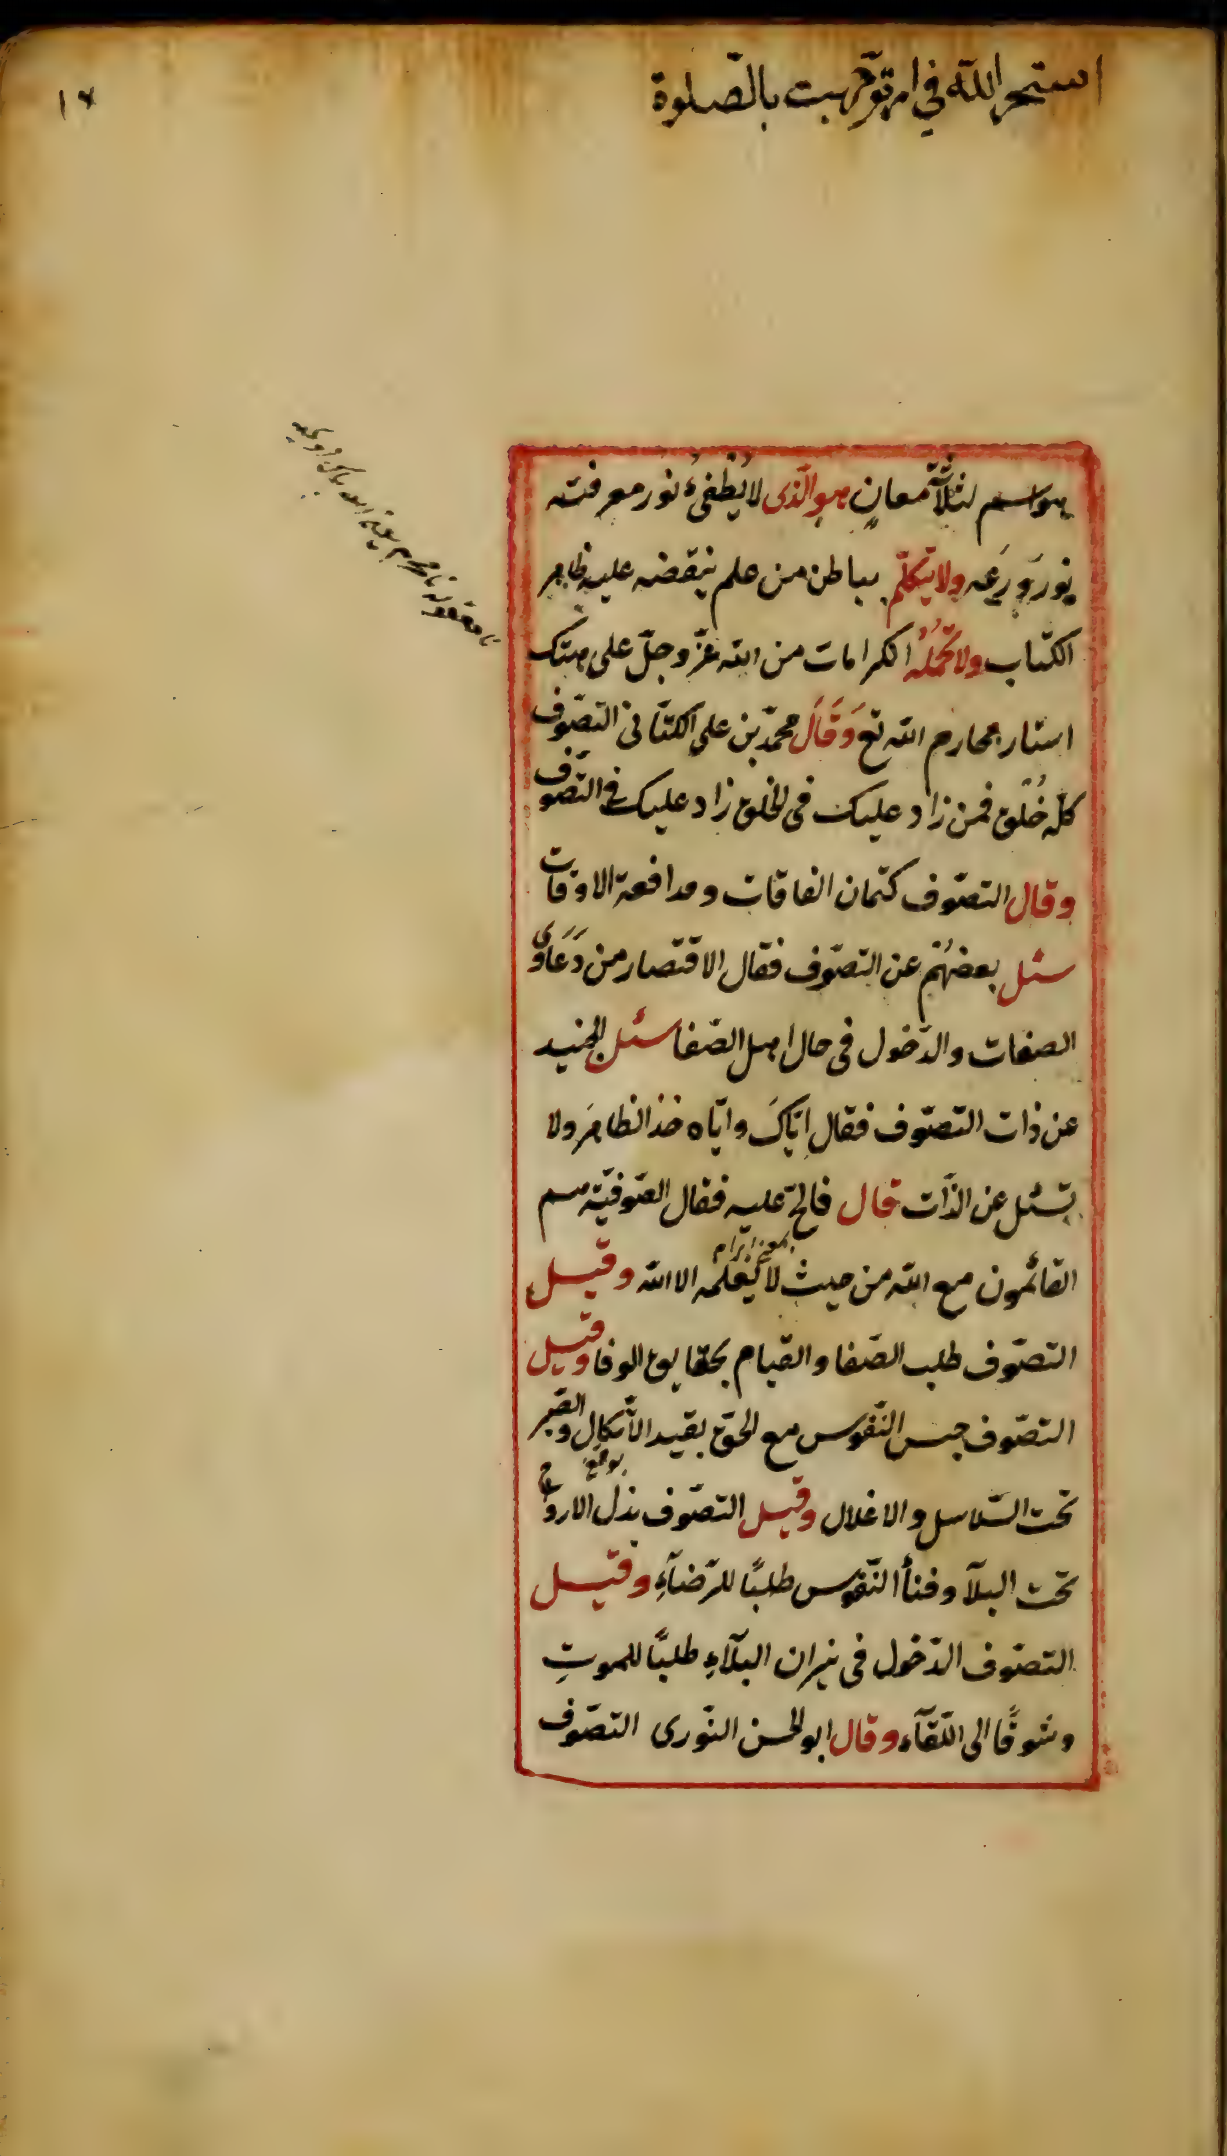 استخر الله في امر توجهت بالصّلوة
١٧
هو اسم لثلاثة معانٍ هو الّذى لا يُطْفِئُ نور معرفته
نور وَرَعِه ولا يتكلّم بباطن من علم ينقضه عليه ظاهر
الكتاب ولا تَحْمُلُه الكرامات من الله عزّ وجلّ على هتك
استار محارم الله تع وَقَالَ محمّد بن على الكتّانى التصّوف
كلّه خُلُق فمن زاد عليك فى الخلق زاد عليك فى التصّوف
وقال التصّوف كتمان الفاقات ومدافعة الاوقات
سئل بعضهُم عن التصّوف فقال الاقتصار من دَعَاوَى
الصفات والدّخول فى حال اهل الصّفا سئل الجنيد
عن ذات التصّوف فقال ايّاكَ وايّاه خذ الظاهرَ ولا
تسئل عن الذّات قال فالحّ عليه فقال الصّوفيّة هم
القائمون مع الله من حيث لا يعلمه الا الله وقيل
التصّوف طلب الصّفا والقيام بحقايق الوفا وقيل
التصّوف حبس النّفوس مع الحقّ بقيد الأنكال والصّبر
تحت السّلاسل والاغلال وقيل التصّوف بذل الارواح
تحت البلآ وفنأ النّفوس طلبًا للرّضآءِ وقيل
التصّوف الدّخول فى نيران البلآءِ طلبًا للموتِ
وشوقًا الى اللّقآء وقال ابو الحسن النّورى التصّوف